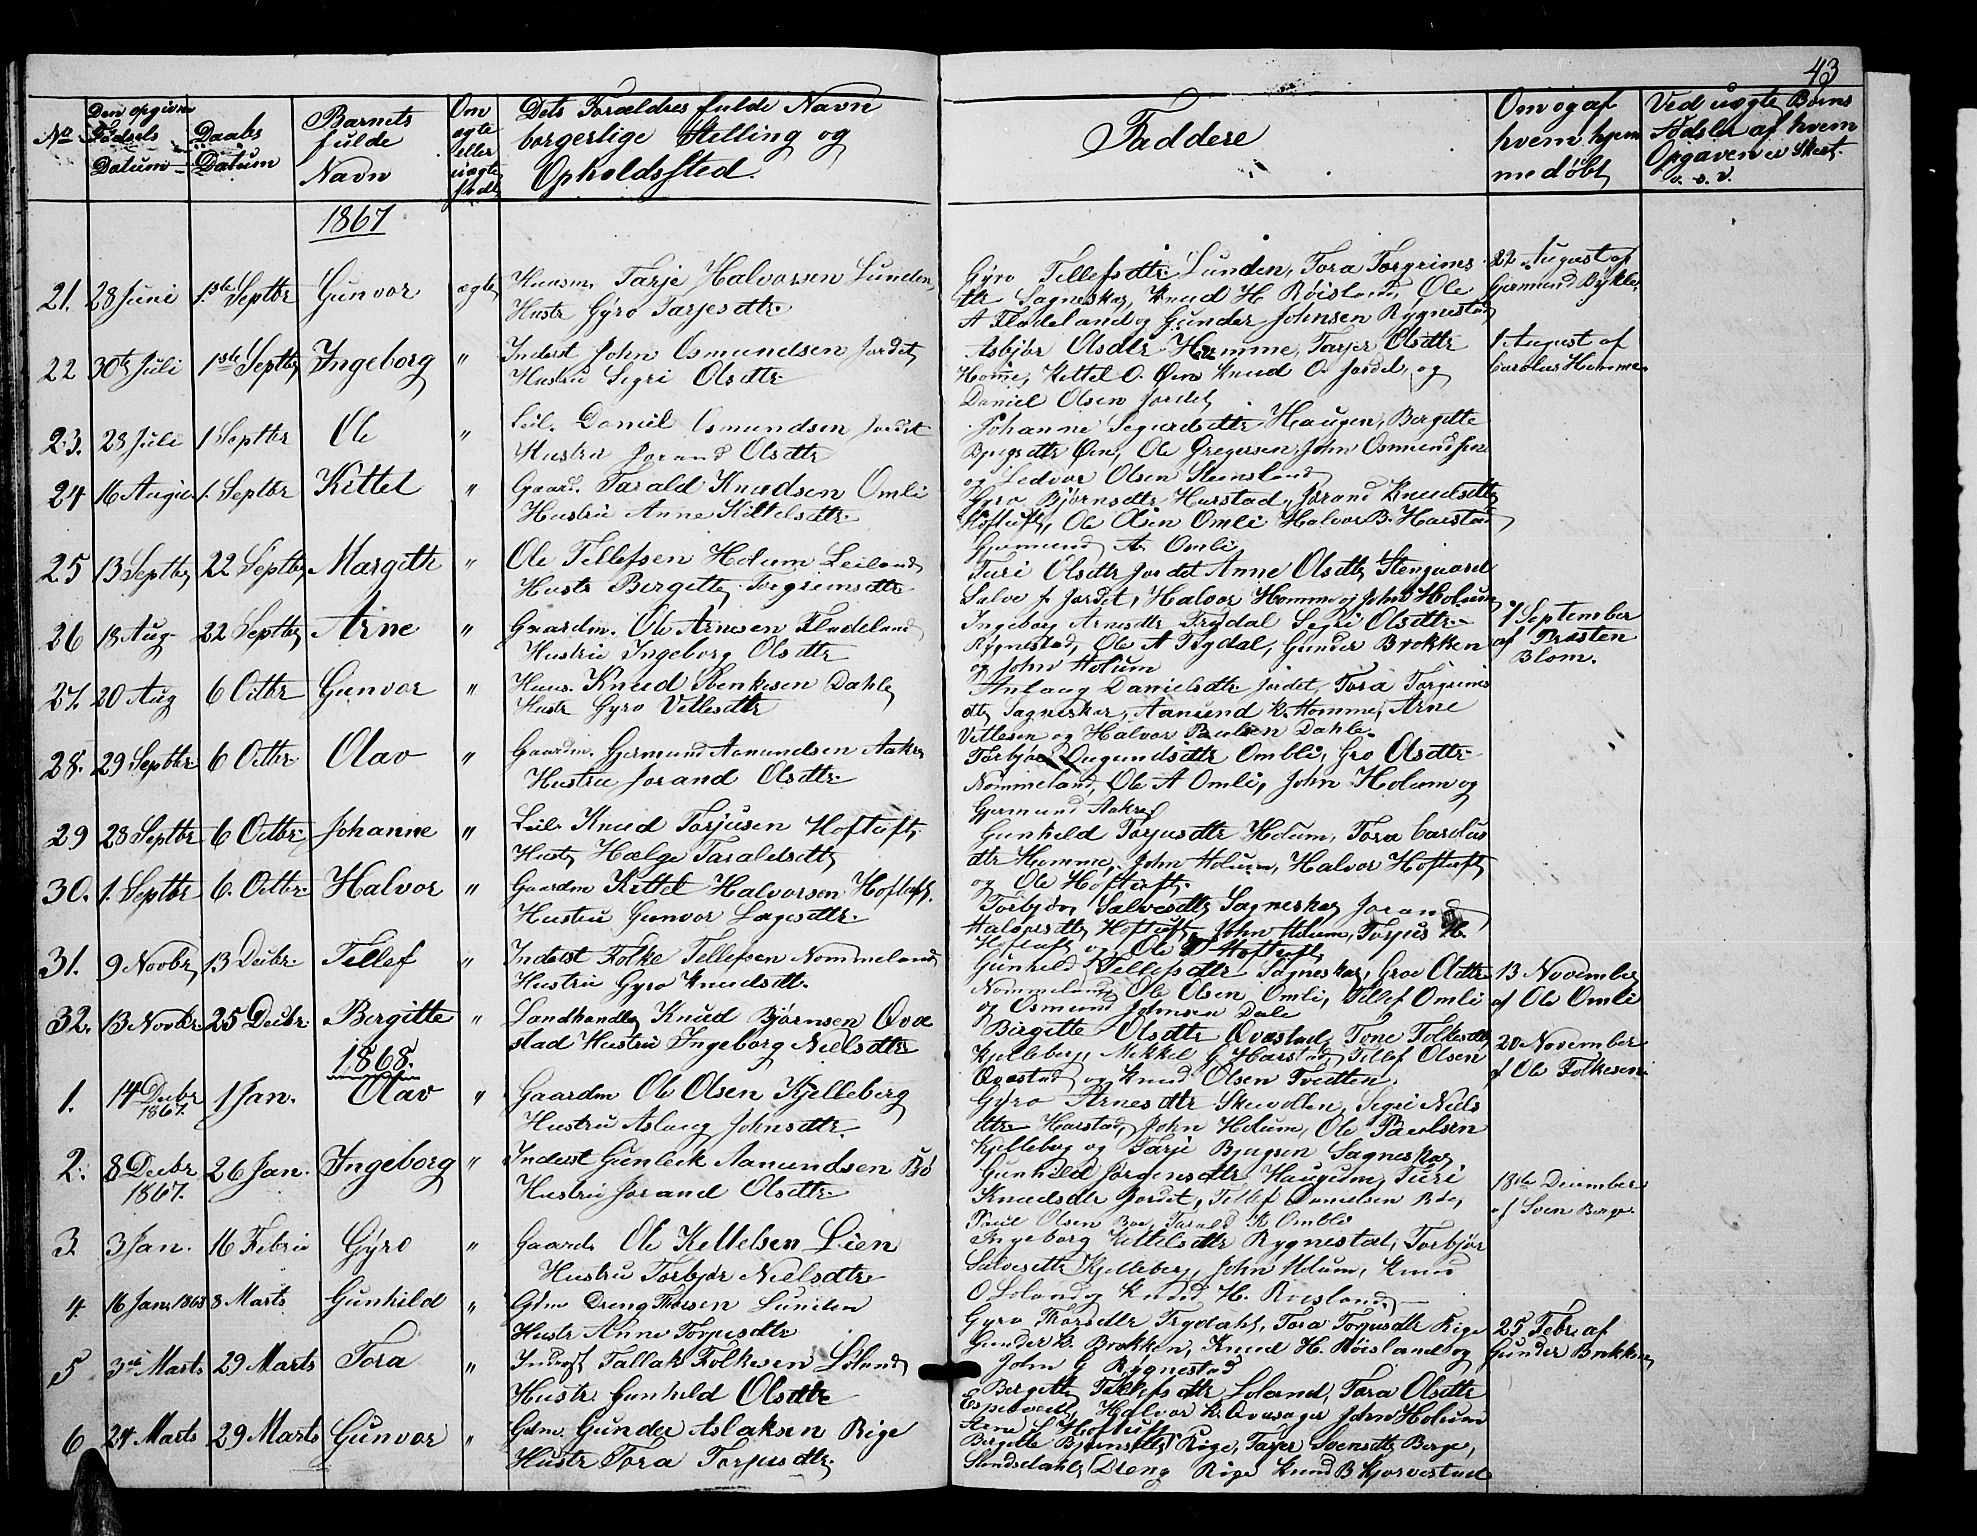 43
No
Den opgivne Fødsels Datum
Daabs Datum
Barnets fulde Navn
Om ægte eller uægte født
Dets Forældres fulde Navn borgerlige Stilling og Opholdssted.
Faddere
Om og af hvem hjemmedøbt
Ved uægte Børns Fødsler af hvem Opgaven er Skeet. o. s. v.
1867
21. 28 Juni 1ste Septbr Gunvor ægte Huusm. Tarje Halvorsen Lunden,
Hustr Gyro Tarjesdtr.
Gyro Tellefsdtr. Lunden, Tora Torgrims
dtr Sagneskar, Knud H. Røisland, Ole
A Fladeland og Gunder Johnsen Rygnestad
22 August af
Gjermund Bykle.
22 30te Juli 1ste Septbr Ingeborg " Inderst John Osmundsen Jordet
Hustru Segri Olsdtr
Asbjør Olsdtr Homme, Tarjer Olsdtr
Home, Kittel O. Øen Knud O. Jordet, og
Daniel Olsen Jordet
1 August af
Carolus Homme.
23. 28 Juli 1 Septbr Ole " Leil. Daniel Osmundsen Jordet
Hustru Jorand Olsdtr
Johanne Segurdsdtr Haugen, Bergitte
Bjugsdtr Øen, Ole Gregersen, John Osmundsen
og Ledvor Olsen Steinsland
24 16 August 1. Septbr Kittel " Gaard. Tarald Knudsen Omli
Hustru Anne Kittelsdtr.
Gyro Bjørnsdtr Harstad, Jorand Knudsdtr
Hoftuft, Ole Olsen Omli Halvor B. Harstad
Gjermund A. Omli
25 13 Septbr 22 Septbr Margith " Ole Tellefsen Holum Leiland
Hustr Bergitte Torgrimsdtr
Turi Olsdtr Jordet Anne Olsdtr Stengaard
Salve J. Jordet, Halvor Homme og John Holum
26 18 Aug 22 Septbr Arne " Gaardm. Ole Arnesen Fladeland
Hustru Ingeborg Olsdtr
Ingeborg Arnesdtr Trydal Segri Olsdtr
Rygnestad, Ole A Trydal, Gunder Brokken
og John Holum
1 September
af Presten
Blom.
27. 20 Aug 6 Octbr Gunvor " Huus. Knud Svenkesen Dahle
Hustr Gyro Vetlesdtr
Anlaug Danielsdtr Jordet, Tora Torgrims
dtr Sagneskar, Aanund K. Homme, Arne
Vetlesen og Halvor Paulsen Dahle.
28. 29 Septbr 6 Octbr Olav " Gaardm. Gjermund Aanundsen Aakre
Hustru Jorand Olsdtr
Torbjør Dugundsdtr Ombli, Gro Olsdtr
Nommeland, Ole A Omli, John Holum og
Gjermund Aakre
29 28 Septbr 6 Octbr Johanne " Leil. Knud Torjusen Hoftuft,
Hustr Hælge Taraldsdtr
Gunhild Torjusdtr Holum, Tora Carolus
dtr Homme, John Holum, Halvor Hoftuft
og Ole Hoftuft.
30. 1. Septbr 6. Octbr. Halvor " Gaardm Kittel Halvorsen Hoftuft.
Hustru Gunvor Lagesdtr.
Torbjør Salvesdtr Sagneskar Jorand
Halvorsdtr Hoftuft, John Holum, Torjus H.
Hoftuft og Ole Hoftuft,
31. 9 Novbr 13 Decbr. Tellef " Inderst Folke Tellefsen Nommeland
Hustru Gyro Knudsdt.
Gunhild Tellefsdtr Sagneskar, Groe Olsdtr
Nommeland, Ole Olsen Omli, Tellef Omli
og Osmund Johnsen Dale
13 November
af Ole Omli
32. 13 Novbr. 25 Decbr Bergitte " Landhandler Knud Bjørnsen Qvæ
stad Hustru Ingeborg Nielsdtr
Birgitte Olsdtr Qvæstad, Tone Folkesdtr
Kjelleberg, Mikkel G Harstad, Tellef Olsen
Qvæstad og Knud Olsen Tveiten.
20 November
af Ole Folkesen.
1868.
1. 14 Decbr 1867. 1 Jan. Olav " Gaardm Ole Olsen Kjelleberg
Hustru Aslaug Johnsdtr.
Gyro Arnesdtr Skevollen, Segri Niels
dtr Harstad, John Holum, Ole Paulsen
Kjelleberg og Tarje Bjugsen Sagneskar
2. 8 Decbr 1867. 26 Jan. Ingeborg " Inderst Gunleik Aanundsen Bø
Hustru Jorand Olsdtr.
Gunhild Jørgensdtr Haugum, Turi
Knudsdtr Jordet, Tellef Danielsen Bøe,
Paul Olsen Bøe, Tarald K Omblie
18de December
af Sven Berge.
3. 3 Jan. 16 Februa Gyro " Gaard. Ole Kittelsen Lien
Hustru Torbjør Nielsdtr
Ingeborg Kittelsdtr Rygnestad, Torbjør
Salvesdtr Kjelleberg, John Holum, Knud
O. Loland og Knud H. Roisland.
4. 16 Jan. 1868 8 Marts Gunhild " Gdm Dreng Thorsen Lunden
Hustr Anne Torjusdtr
Gyro Thorsdtr Trydahl, Tora Torjusdtr Rige
Gunder K. Brokken, Knud H. Røisland og
John G Rygnestad
25 Febr. af
Gunder Brokken
5 3die Marts 29 Marts Tora " Tallak Folkesen Løland
Hustr. Gunhild Olsdtr
Bergitte Tellefsdtr Loland, Tora Olsdtr
Espetveit, Halvor K. John Holum
Arne Hoftuft
6 24 Marts 29 Marts Gunvor " Gdm. Gunder Aslaksen Rige
Hustr Tora Torjusdtr.
Bergitte Bjørnsdtr Rige, Tarjer Svensdtr Berge,
Dreng Rige Knud B Kjørvestad